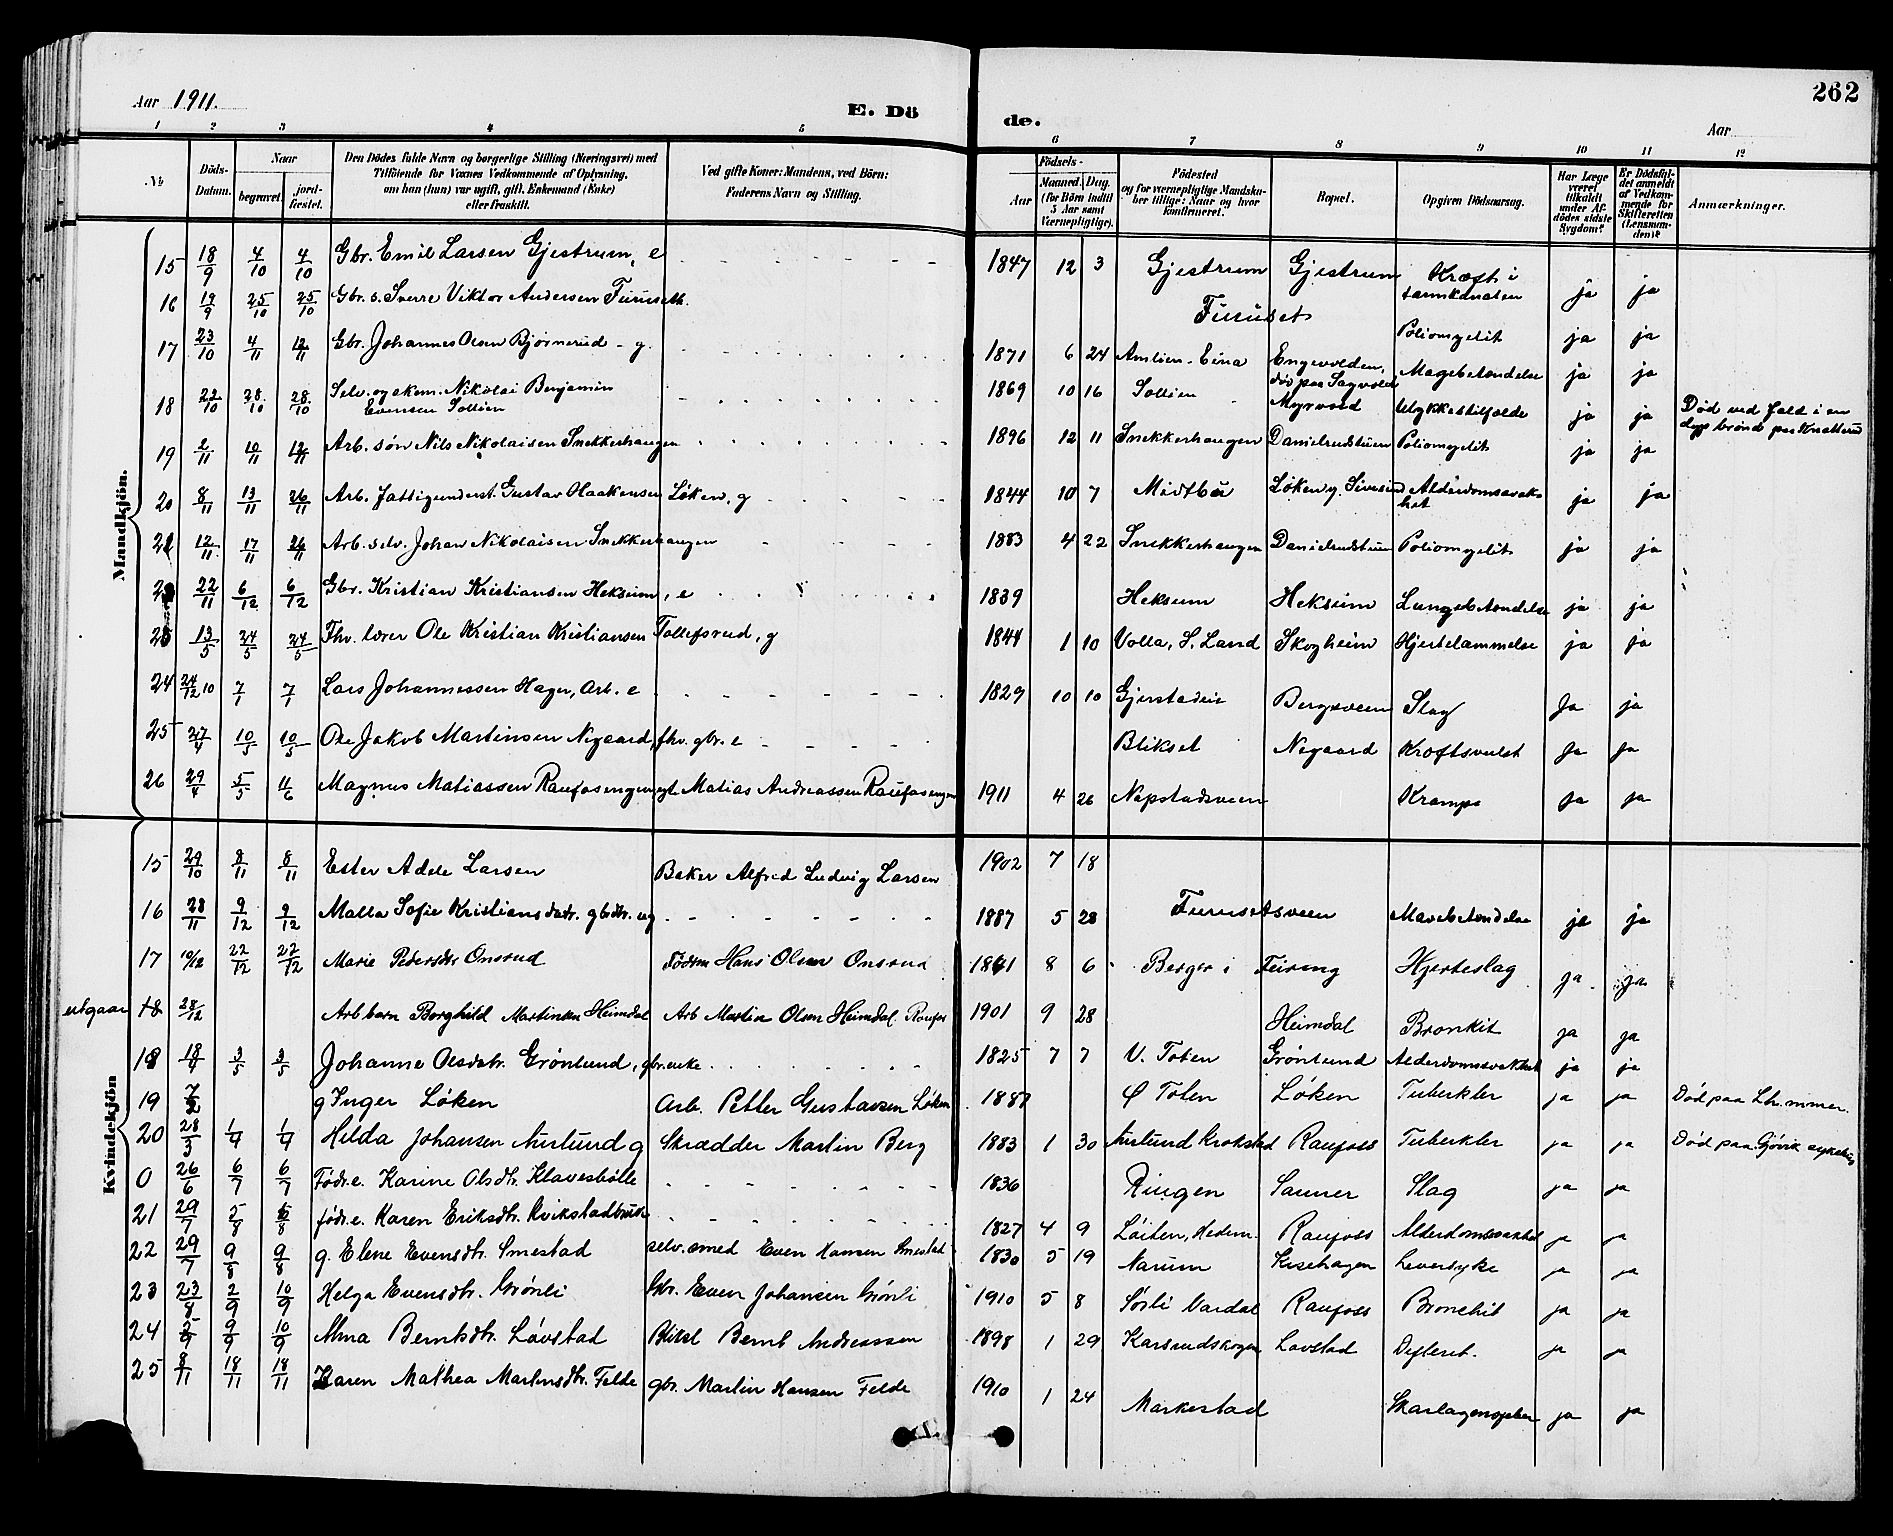 262
Aar 1911.
E. Döde.
Aar
1 2 3 4 5 6 7 8 9 10 11 12
No
Döds-Datum.
Naar
begravet.
jordfæstet.
Den Dödes fulde Navn og borgerlige Stilling (Næringsvei) med
Tilföiende for Voxnes Vedkommende af Oplysning,
om han (hun) var ugift, gift, Enkemand (Enke)
eller fraskilt.
Ved gifte Koner: Mandens, ved Börn:
Faderens Navn og Stilling.
Födsels-
Aar
Maaned. Dag.
(for Börn indtil
5 Aar samt
Værnepligtige).
Födested
og for værnepligtige Mandskaber tillige: Naar og hvor
konfirmeret.
Bopæl.
Opgiven Dödsaarsag.
Har Læge
været
tilkaldt
under Afdödes sidste
Sygdom?
Er Dödsfaldet anmeldt
af Vedkommende for
Skifteretten
(Lensmanden)?
Anmærkninger.
Mandkjön.
15 18/9 4/10 4/10 Gbr. Emil Larsen Gjestrum, e 1847 12 3 Gjestrum Gjestrum Kræft i tarmkanalen ja ja
16 19/9 25/10 25/10 Gbr. s. Sverre Viktor Andersen Furuseth. Furuset Poliomyelit ja ja
17 23/10 4/11 12/11 Gbr. Johannes Olsen Bjørnerud - g. 1871 6 24 Amlien - Eina Engevolden, død paa Sagvold Magebetændelse ja ja
18 22/10 28/10 28/10 Selv. og økom. Nikolai Benjamin Evensen Sollien 1869 10 16 Sollien Myrvold Ulykkestilfælde ja ja Død ved fald i en dyp brønd paa Knatterud
19 2/11 10/11 12/11 Arb. søn Nils Nikolaisen Snekkerhaugen 1896 12 11 Snekkerhaugen Danielrudstuen Poliomyelit ja ja
20 8/11 13/11 26/11 Arb. fattigunderst. Gustav Haakensen Løken, g 1844 10 7 Midtbø Løken y. Sivesind Alderdomssvakhet ja ja
21 12/11 17/11 26/11 Arb. selv. Johan Nikolaisen Snekkerhaugen 1883 4 22 Snekkerhaugen Danielrudstuen Poliomyelit ja ja
22 22/11 6/12 6/12 Gbr. Kristian Kristiansen Heksum, e 1839 Heksum Heksum Lungebetændelse ja ja
23 13/5 24/5 24/5 Fhv. lærer Ole Kristian Kristiansen Tollefsrud, g 1844 1 10 Volla, S. Land Skogheim Hjertelammelse ja ja
24 24/12 10 7/1 7/1 Lars Johannessen Hager, Arb. e 1829 10 10 Gjerstadeie Bergsveen Slag Ja ja
25 27/4 10/5 10/5 Ole Jakob Martinsen Nygaard, fhv. gbr. e Blikset Nygaard Kræftsvulst Ja ja
26 29/4 5/5 11/6 Magnus Matiassen Raufosengen, egt. Matias Andreassen Raufosengen 1911 4 26 Napstadsveen Krampe Ja ja
Kvindekjön
15 29/10 8/11 8/11 Ester Adele Larsen Baker Alfred Ludvig Larsen 1902 7 18
16 28/11 9/12 9/12 Malla Sofie Kristiansdatr. gbdtr. ug 1887 5 28 Furusetsveen Mavebetændelse ja ja
17 10/12 22/12 22/12 Marie Pedersdtr Onsrud Fødem Hans Olsen Onsrud 1841 8 6 Berger i Feiring Hjerteslag ja ja
utgaar 18 28/12 Arb barn Borghild Martinsen Heimdal Arb Martin Olsen Heimdal Raufos 1901 9 28 Heimdal Bronkit ja ja
18 18/4 3/5 3/5 Johanne Olsdatr. Grönlund, gbr.enke 1825 7 7 V. Toten Grönlund Alderdomssvakhet ja ja
19 7/2 g Inger Løken Arb. Petter Gustavsen Løken 1887 Ø Toten Løken Tuberkler ja ja Død paa Lh.mmer.
20 28/3 1/4 1/4 Hilda Johansen Aurlund g Skrædder Martin Berg 1883 1 30 Aurlund Krokstad Raufoss Tuberkler ja ja Død paa Gjövik sykehus
0 26/6 6/7 6/7 Fødr. e. Karine Olsdtr. Klavesbølle 1836 Ringen Sauner Slag ja ja
21 29/7 5/8 5/8 fødr. e. Karen Eriksdtr. Kvikstadbruk 1827 4 9 Löiten, Hedem. Raufoss Alderdomssvakhet ja ja
22 29/7 9/8 9/8 g. Elene Evensdtr. Smestad selv. smed Even Hansen Smestad 1830 5 19 Narum Kisehagen Leversyke ja ja
23 23/8 2/9 10/9 Helga Evensdtr. Grönli Gbr. Even Johansen Grönli 1910 5 8 Sörli Vardal Raufoss Bronchit ja ja
24 5/9 9/9 10/9 Alma Berntsdtr. Lövstad Bernt Andreassen 1898 1 29 Karsrudskogen Lövstad Dyfterit. ja ja
25 8/11 18/11 18/11 Karen Mathea Martinsdtr. Felde gbr. Martin Hansen Felde 1910 1 24 Markestad Skarlagensfeber ja ja